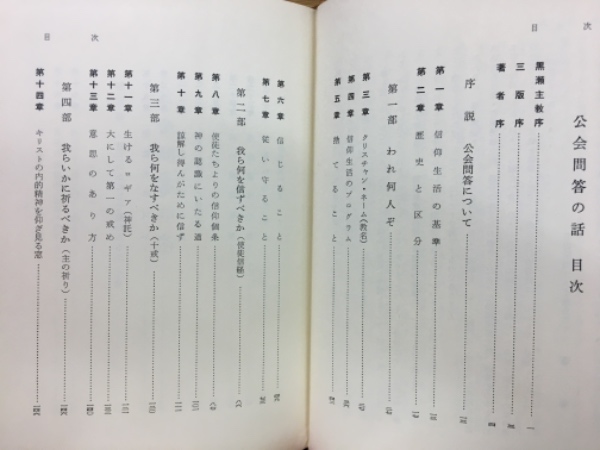 目次
公会問答の話 目次
黒瀬主教序
三版序
著者序
序説 公会問答について
第一章 信仰生活の基準
第二章 歴史と区分
第一部 われ何人ぞ
第三章 クリスチャン・ネーム(教名)
第四章 信仰生活のプログラム
第五章 捨てること
目次
第六章 信じること
第七章 従い守ること
第二部 我ら何を信ずべきか(使徒信経)
第八章 使徒たちよりの信仰個条
第九章 神の認識にいたる道
第十章 諒解し得んがために信ず
第三部 我ら何をなすべきか(十戒)
第十一章 生けるロギア(神託)
第十二章 大にして第一の戒め
第十三章 意志のあり方
第四部 我らいかに祈るべきか(主の祈り)
第十四章 キリストの内的精神を仰ぎ見る窓